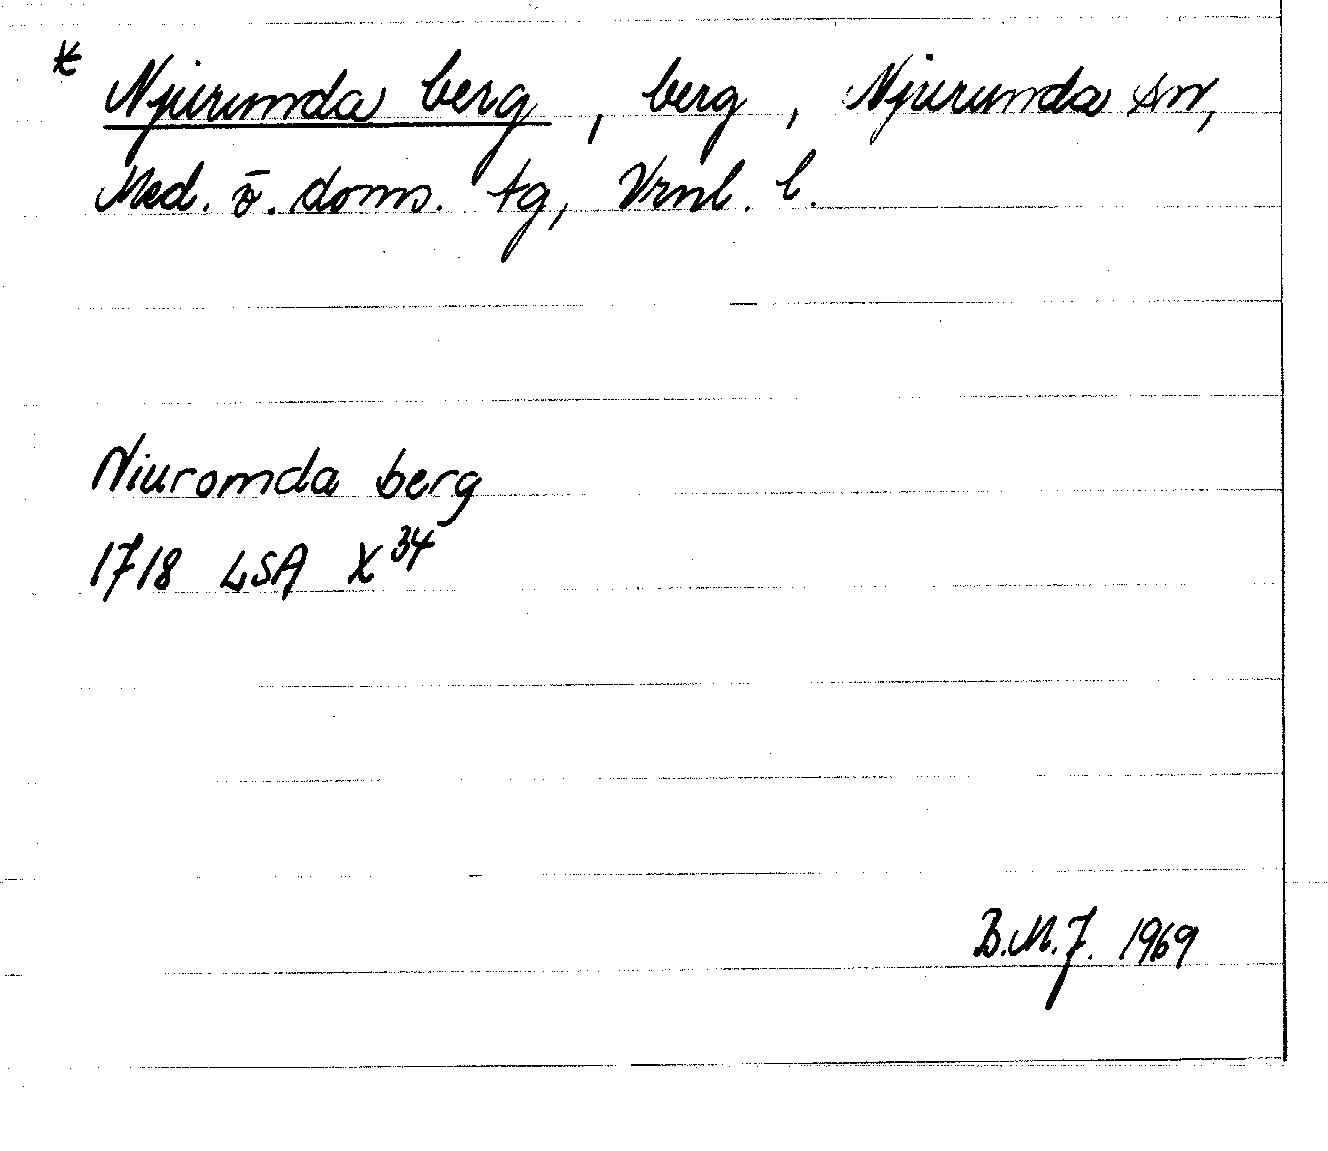 * Njurunda berg, berg, Njurunda sn,
Med. ö. doms. tg, Vrnl. l.
Niuromda berg
1718 LSA X³⁴
B.M.J. 1969